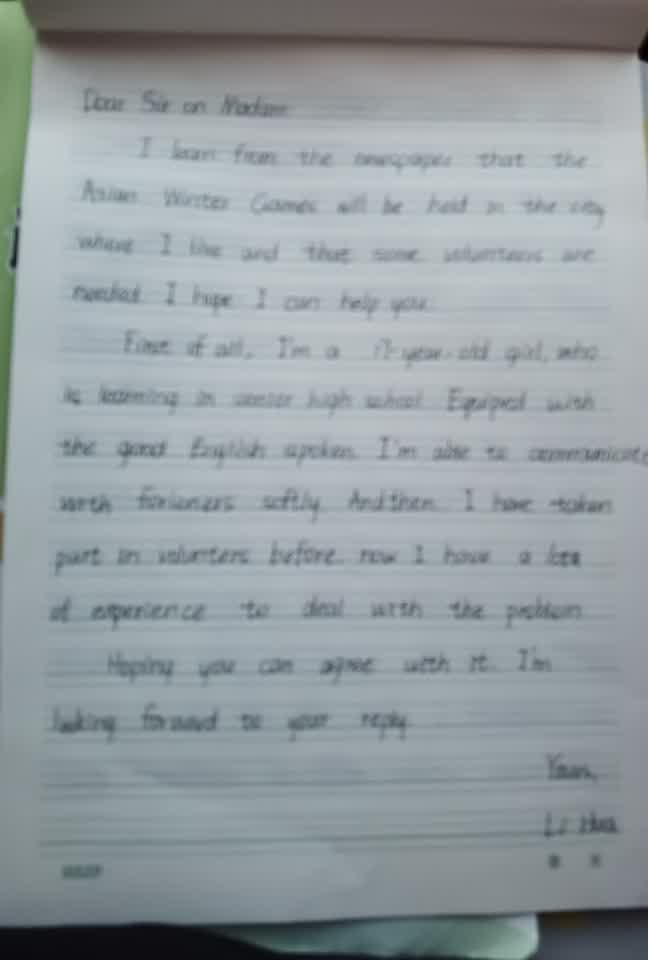 Dear Sir or Madam
I learn from the newspaper that the
Asian Winter Games will be held in the city
where I live and that some volunteers are
needed I hope I can help you
First of all, I'm a 17-year-old girl, who
is learning in senior high school Equiped with
the good English spoken I'm able to communicate
with softly. And then I have taken
part in before. now I have a
of experience to deal with the problem
Hoping you can agree with it. I'm
looking forward to your reply
Yours,
Li Hua